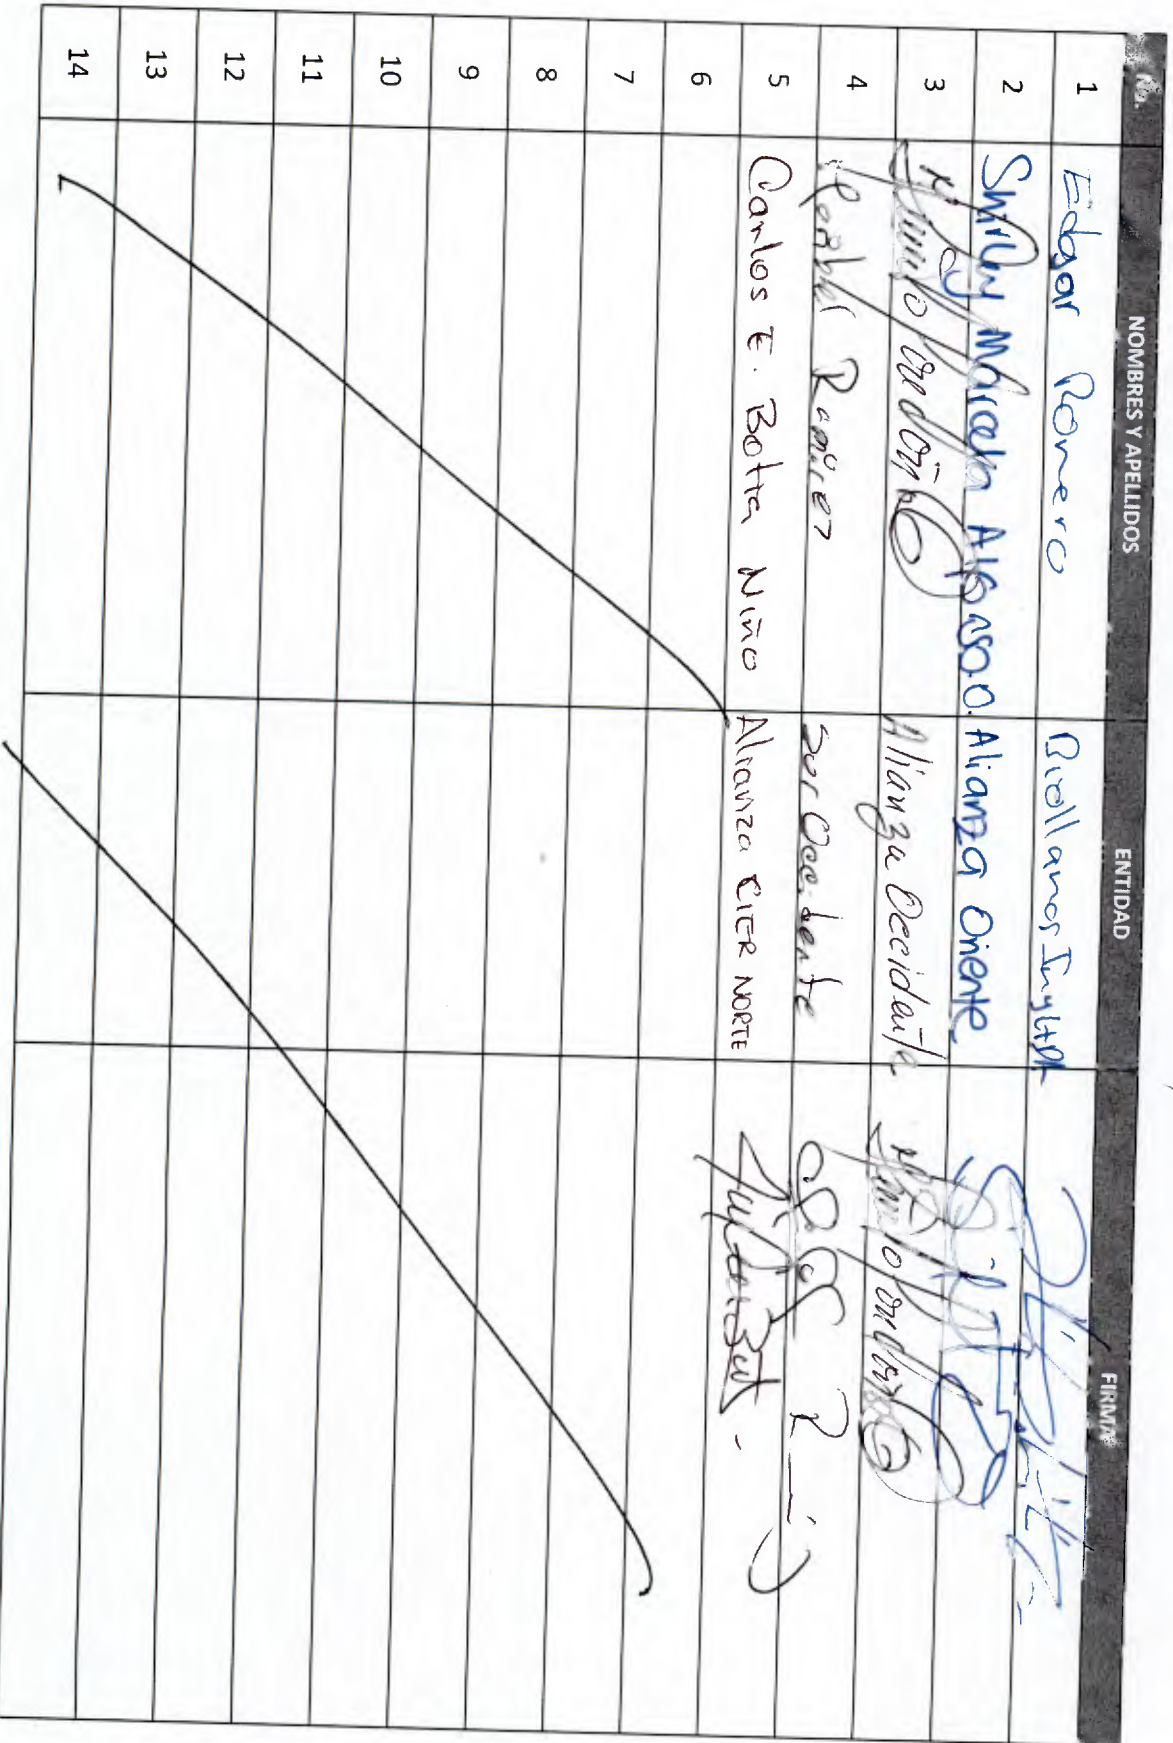 No. NOMBRES Y APELLIDOS ENTIDAD FIRMA
1 Edgar Romero Biollanos Ing LtDA
2 Shirley Marcela Alfonso O. Alianza Oriente
3 Alianza Occidente
4 Ramirez Sur Occidente
5 Carlos E. Botia Niño Alianza CIER NORTE
6
7
8
9
10
11
12
13
14